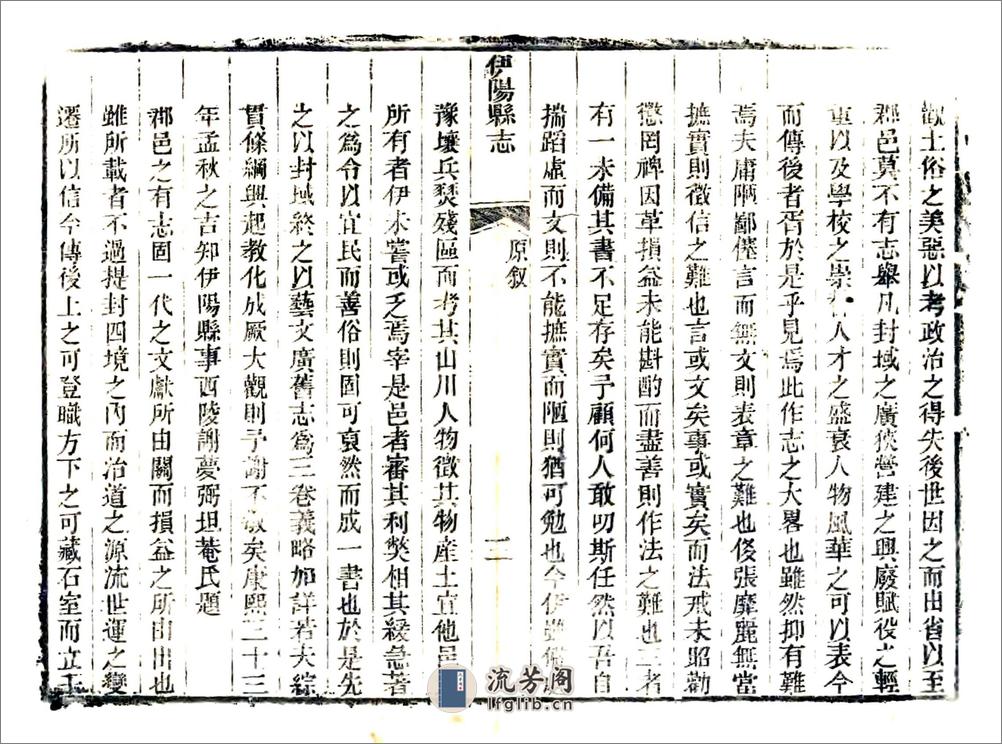 觀土俗之美惡以考政治之得失後世因之而由省以至
郡邑莫不有志舉凡封域之廣狹營建之興廢賦役之輕
重以及學校之崇 人才之盛衰人物風華之可以表今
而傳後者胥於是乎見焉此作志之大畧也雖然抑有難
焉夫庸陋鄙俚言而無文則表章之難也侈張靡麗無當
摭實則徵信之難也言或文矣事或實矣而法戒未昭勸
懲罔裨因革損益未能斟酌而盡善則作法之難也三者
有一未備其書不足存矣予顧何人敢叨斯任然以吾自
揣蹈虛而文則不能摭實而陋則猶可勉也今伊
伊陽縣志
原叙
二
豫壤兵燹殘區而考其山川人物徵其物産土宜他邑
所有者伊未嘗或乏焉宰是邑者審其利獘相其緩急著
之為令以宜民而善俗則固可裒然而成一書也於是先
之以封域終之以藝文廣舊志為三卷義略加詳若夫綜
貫條綱興起教化成厥大觀則予謝不敏矣康熙三十三
年孟秋之吉知伊陽縣事西陵謝夢弼坦菴氏題
郡邑之有志固一代之文獻所由關而損益之所由出也
雖所載者不過提封四境之內而治道之源流世運之變
遷所以信今傳後上之可登職方下之可藏石室而立
流芳阁
lfglib.cn